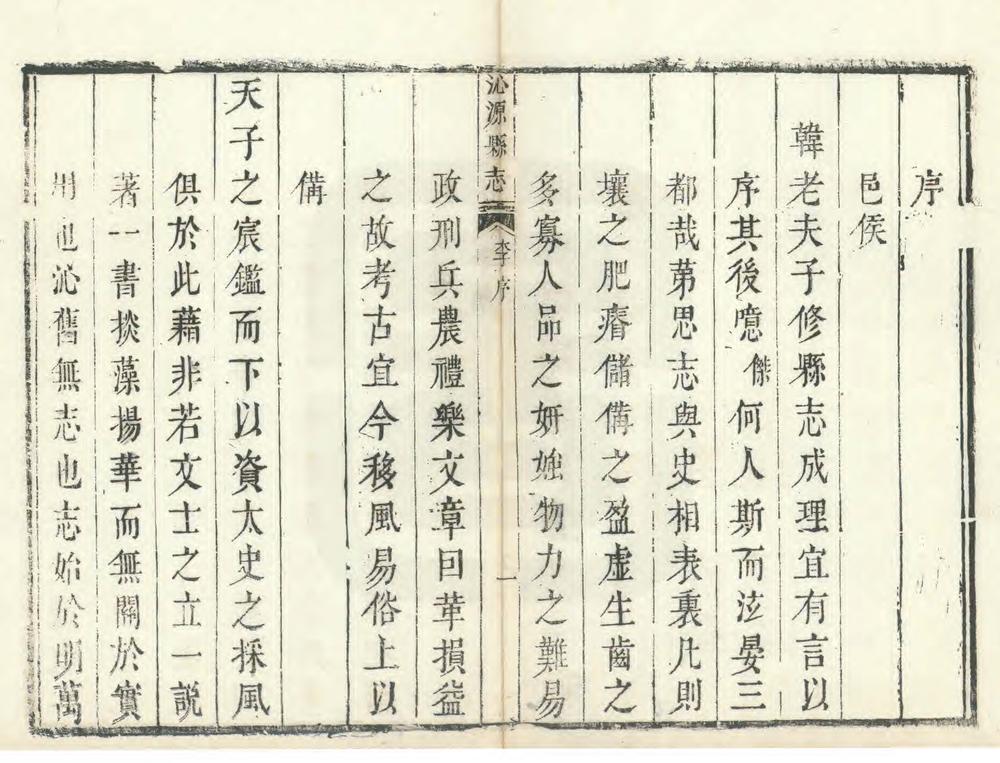 序
邑侯
韓老夫子修縣志成理宜有言以
序其後噫傑何人斯而泫晏三
都哉苐思志與史相表裏凡則
壤之肥瘠儲偹之盈虛生齒之
多寡人品之妍媸物力之難易
沁源縣志
李序
一
政刑兵農禮樂文章回革損益
之故考古宜今移風易俗上以
備
天子之宸鑑而下以資太史之採風
俱於此藉非若文士之立一說
著一書掞藻揚華而無關於實
用也沁舊無志也志始於明萬